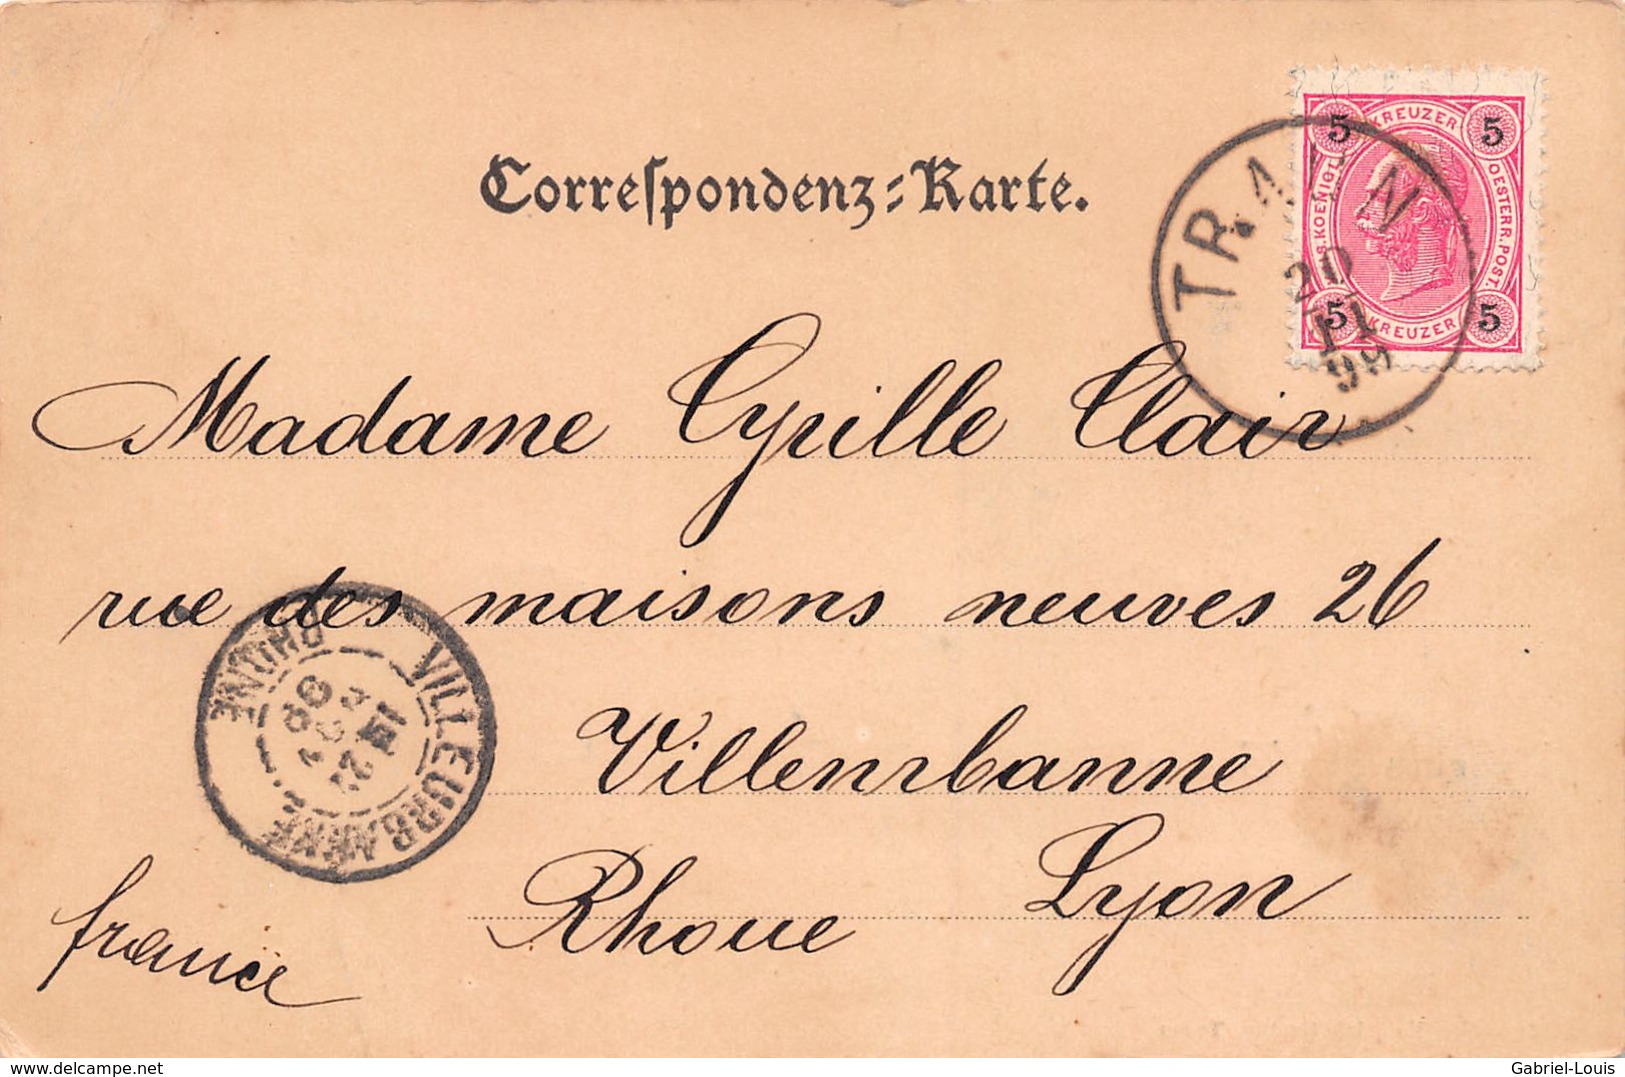 Correspondenz-Karte.
KREUZER
5 5
K.KOENIGL. OESTERR.POST.
5 5
KREUZER
20
11
99
Madame Cyrille Clair
rue des maisons neuves 26
Villeurbanne
Rhone Lyon
france
VILLEURBANNE
RHÔNE
delcampe.net
Gabriel-Louis